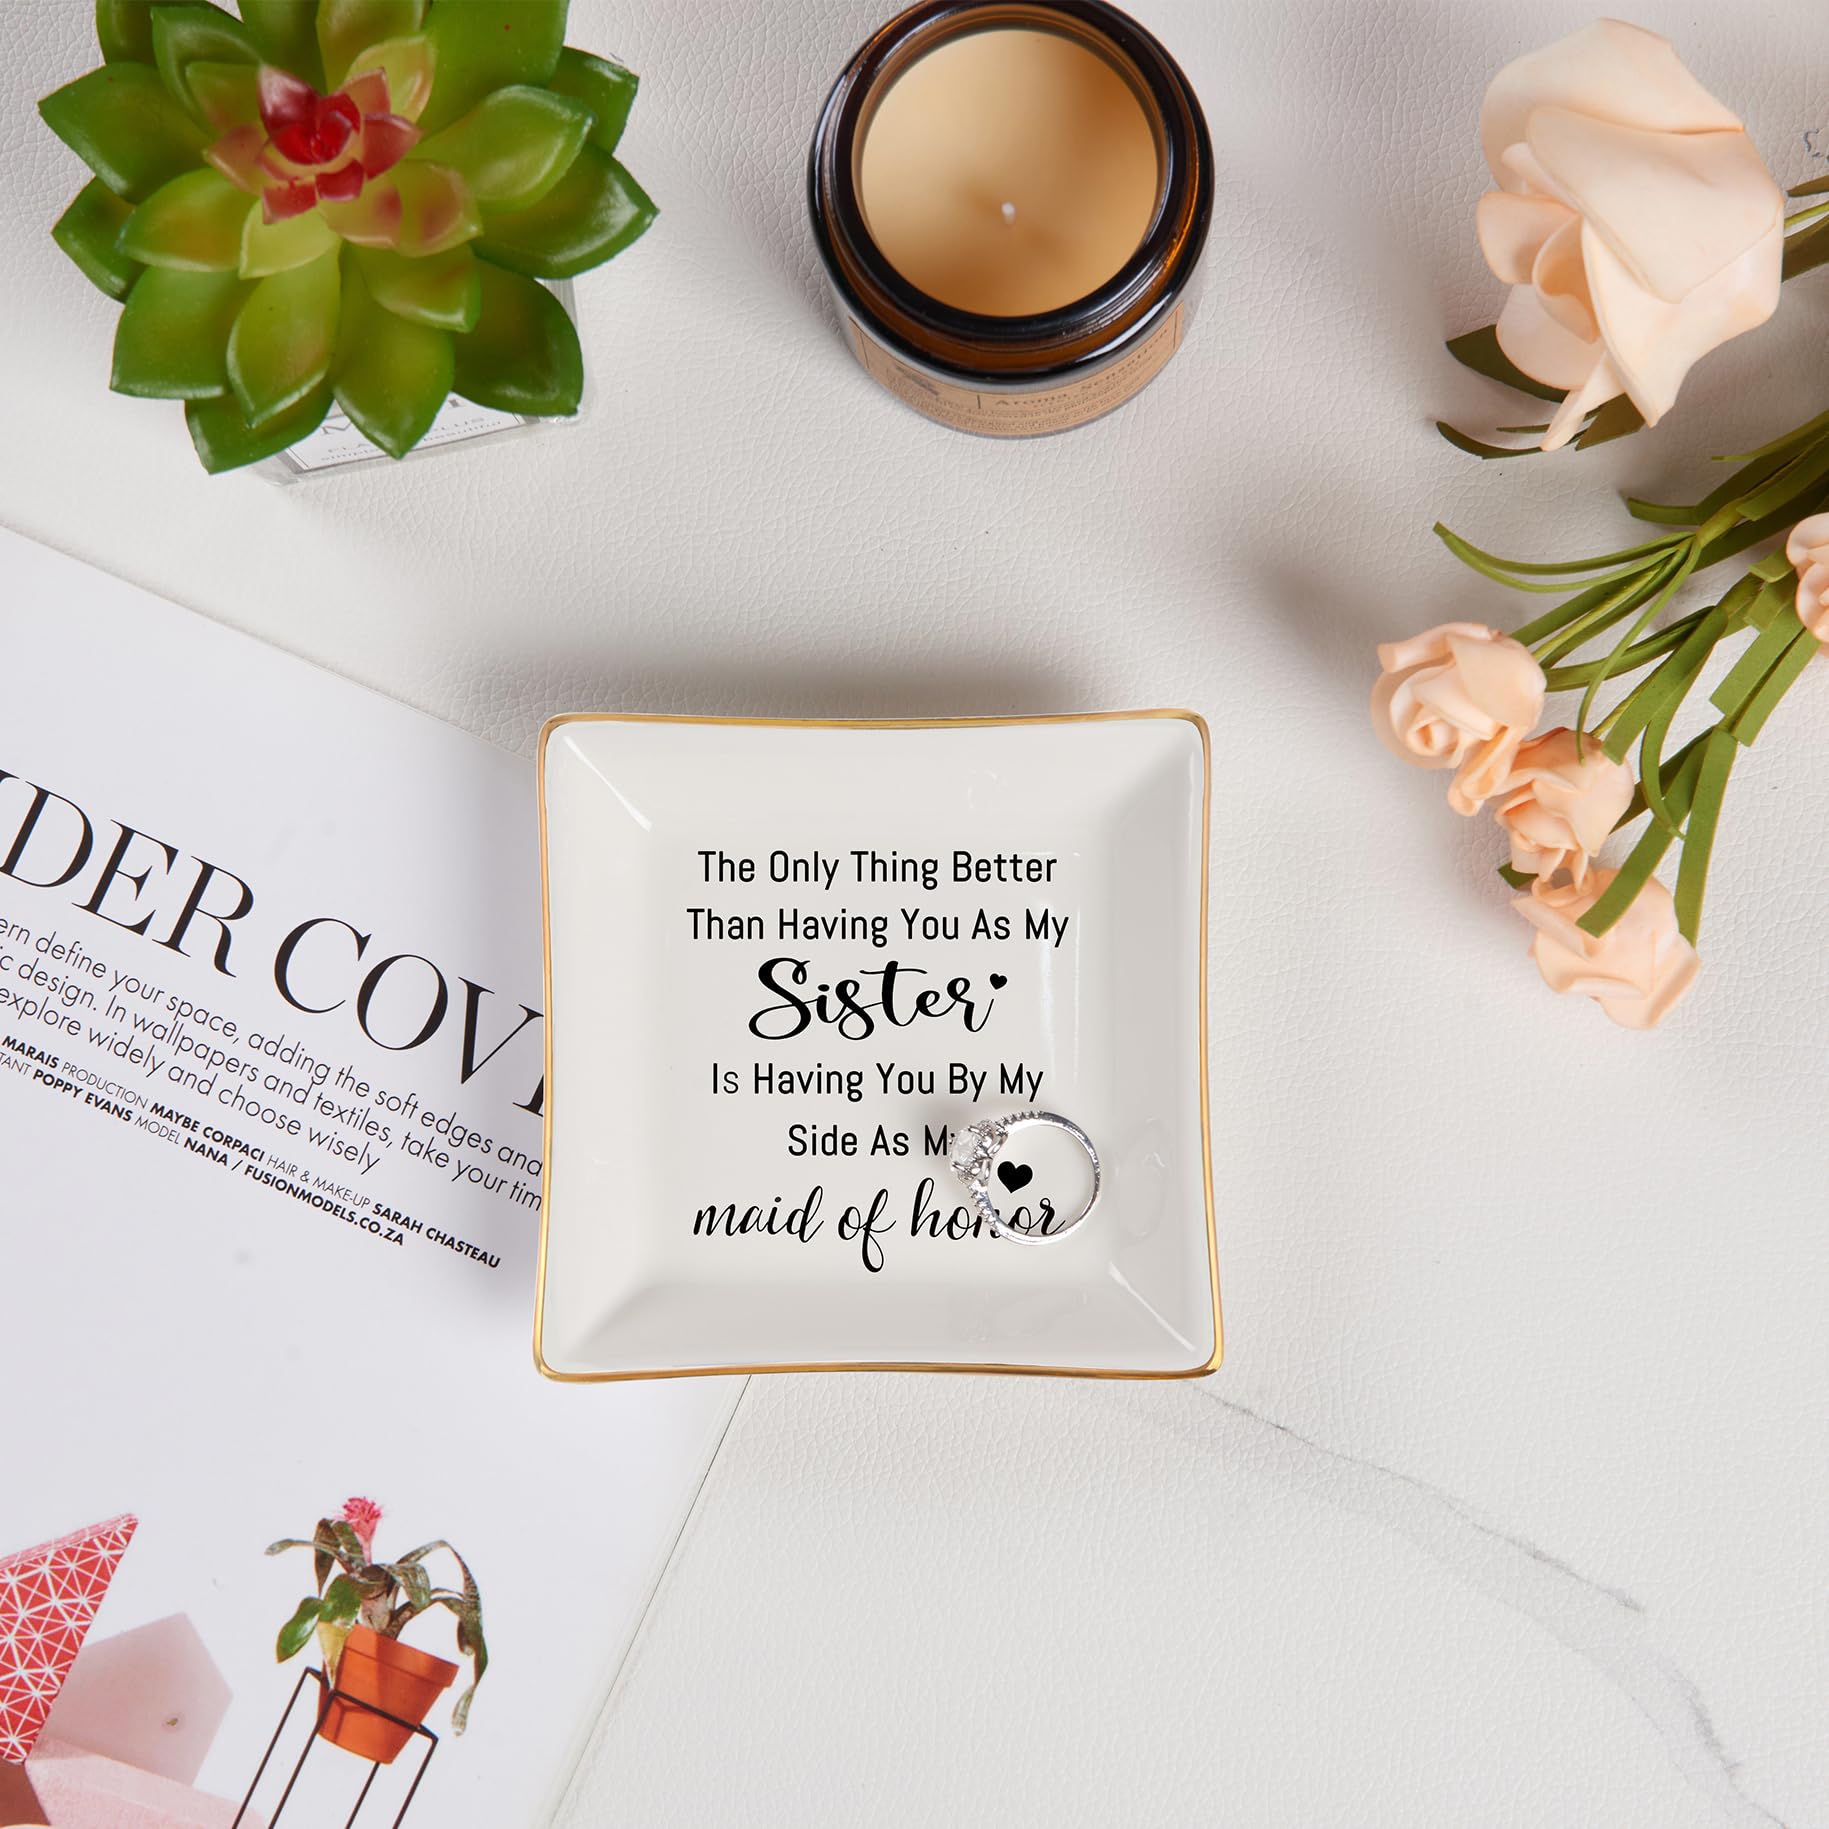 Aroma Sensation
The Only Thing Better
Than Having You As My
Sister
Is Having You By My
Side As My
maid of honor
DER COV
ern define your space, adding the soft edges and
c design. In wallpapers and textiles, take your tim
explore widely and choose wisely
MARAIS PRODUCTION MAYBE CORPACI HAIR & MAKE-UP SARAH CHASTEAU
TANT POPPY EVANS MODEL NANA / FUSIONMODELS.CO.ZA